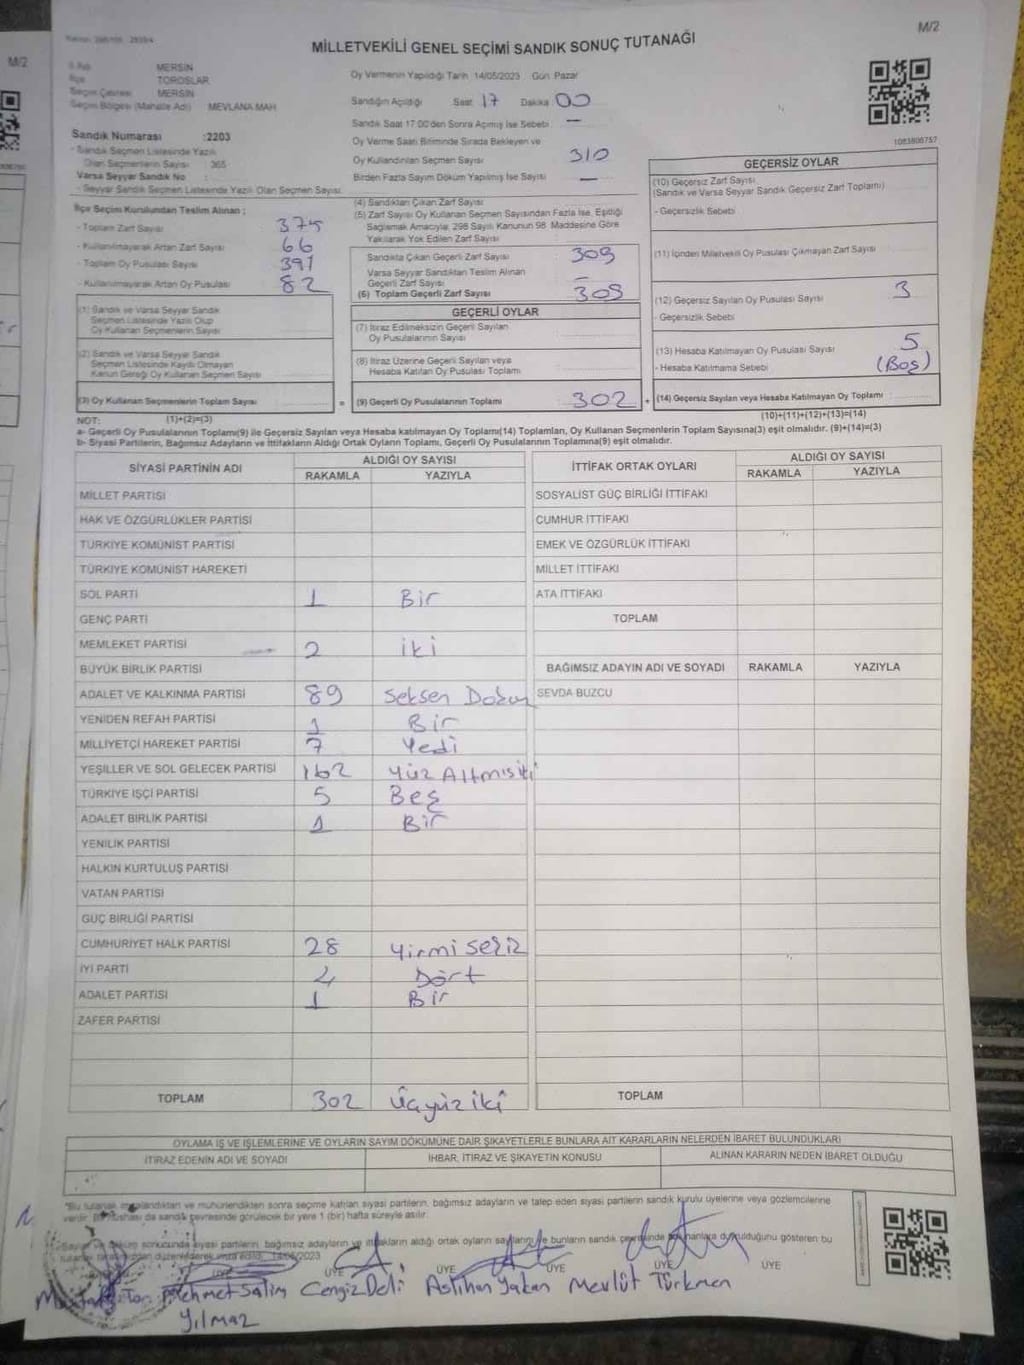 M/2
MİLLETVEKİLİ GENEL SEÇİMİ SANDIK SONUÇ TUTANAĞI
M/2
MERSİN
TOROSLAR
Seçim Çevresi MERSİN
Seçim Bölgesi (Mahalle Adı) MEVLANA MAH
Oy Vermenin Yapıldığı Tarih 14/05/2023 Gün Pazar
Sandığın Açıldığı Saat 17 Dakika 00
Sandık Saat 17:00'den Sonra Açılmış İse Sebebi —
Sandık Numarası :2203
- Sandık Seçmen Listesinde Yazılı
Olan Seçmenlerin Sayısı 365
Varsa Seyyar Sandık No
- Seyyar Sandık Seçmen Listesinde Yazılı Olan Seçmen Sayısı
Oy Verme Saati Bitiminde Sırada Bekleyen ve
Oy Kullandırılan Seçmen Sayısı 310
Birden Fazla Sayım Döküm Yapılmış İse Sayısı —
1083800757
İlçe Seçim Kurulundan Teslim Alınan ;
- Toplam Zarf Sayısı 375
- Kullanılmayarak Artan Zarf Sayısı 66
- Toplam Oy Pusulası Sayısı 391
- Kullanılmayarak Artan Oy Pusulası 82
(1) Sandık ve Varsa Seyyar Sandık
Seçmen Listesinde Yazılı Olup
Oy Kullanan Seçmenlerin Sayısı
(2) Sandık ve Varsa Seyyar Sandık
Seçmen Listesinde Kayıtlı Olmayan
Kanun Gereği Oy Kullanan Seçmen Sayısı
(3) Oy Kullanan Seçmenlerin Toplam Sayısı
(4) Sandıktan Çıkan Zarf Sayısı
(5) Zarf Sayısı Oy Kullanan Seçmen Sayısından Fazla İse, Eşitliği
Sağlamak Amacıyla; 298 Sayılı Kanunun 98. Maddesine Göre
Yakılarak Yok Edilen Zarf Sayısı
Sandıkta Çıkan Geçerli Zarf Sayısı 309
Varsa Seyyar Sandıktan Teslim Alınan
Geçerli Zarf Sayısı —
(6) Toplam Geçerli Zarf Sayısı 309
GEÇERLİ OYLAR
(7) İtiraz Edilmeksizin Geçerli Sayılan
Oy Pusulalarının Sayısı
(8) İtiraz Üzerine Geçerli Sayılan veya
Hesaba Katılan Oy Pusulası Toplamı
= (9) Geçerli Oy Pusulalarının Toplamı 302
GEÇERSİZ OYLAR
(10) Geçersiz Zarf Sayısı
(Sandık ve Varsa Seyyar Sandık Geçersiz Zarf Toplamı)
- Geçersizlik Sebebi
(11) İçinden Milletvekili Oy Pusulası Çıkmayan Zarf Sayısı
(12) Geçersiz Sayılan Oy Pusulası Sayısı 3
- Geçersizlik Sebebi
(13) Hesaba Katılmayan Oy Pusulası Sayısı 5
- Hesaba Katılmama Sebebi (Boş)
+ (14) Geçersiz Sayılan veya Hesaba Katılmayan Oy Toplamı
NOT: (1)+(2)=(3) (10)+(11)+(12)+(13)=(14)
a- Geçerli Oy Pusulalarının Toplamı(9) ile Geçersiz Sayılan veya Hesaba katılmayan Oy Toplamı(14) Toplamları, Oy Kullanan Seçmenlerin Toplam Sayısına(3) eşit olmalıdır. (9)+(14)=(3)
b- Siyasi Partilerin, Bağımsız Adayların ve İttifakların Aldığı Ortak Oyların Toplamı, Geçerli Oy Pusulalarının Toplamına(9) eşit olmalıdır.
SİYASİ PARTİNİN ADI ALDIĞI OY SAYISI
RAKAMLA YAZIYLA
MİLLET PARTİSİ
HAK VE ÖZGÜRLÜKLER PARTİSİ
TÜRKİYE KOMÜNİST PARTİSİ
TÜRKİYE KOMÜNİST HAREKETİ
SOL PARTİ 1 Bir
GENÇ PARTİ
MEMLEKET PARTİSİ 2 iki
BÜYÜK BİRLİK PARTİSİ
ADALET VE KALKINMA PARTİSİ 89 Seksen Dokuz
YENİDEN REFAH PARTİSİ 1 Bir
MİLLİYETÇİ HAREKET PARTİSİ 7 Yedi
YEŞİLLER VE SOL GELECEK PARTİSİ 162 Yüz Altmış iki
TÜRKİYE İŞÇİ PARTİSİ 5 Beş
ADALET BİRLİK PARTİSİ 1 Bir
YENİLİK PARTİSİ
HALKIN KURTULUŞ PARTİSİ
VATAN PARTİSİ
GÜÇ BİRLİĞİ PARTİSİ
CUMHURİYET HALK PARTİSİ 28 Yirmi sekiz
İYİ PARTİ 4 Dört
ADALET PARTİSİ 1 Bir
ZAFER PARTİSİ
TOPLAM 302 Üçyüz iki
İTTİFAK ORTAK OYLARI ALDIĞI OY SAYISI
RAKAMLA YAZIYLA
SOSYALİST GÜÇ BİRLİĞİ İTTİFAKI
CUMHUR İTTİFAKI
EMEK VE ÖZGÜRLÜK İTTİFAKI
MİLLET İTTİFAKI
ATA İTTİFAKI
TOPLAM
BAĞIMSIZ ADAYIN ADI VE SOYADI RAKAMLA YAZIYLA
SEVDA BUZCU
TOPLAM
OYLAMA İŞ VE İŞLEMLERİNE VE OYLARIN SAYIM DÖKÜMÜNE DAİR ŞİKAYETLERLE BUNLARA AİT KARARLARIN NELERDEN İBARET BULUNDUKLARI
İTİRAZ EDENİN ADI VE SOYADI İHBAR, İTİRAZ VE ŞİKAYETİN KONUSU ALINAN KARARIN NEDEN İBARET OLDUĞU
"Bu tutanak imzalandıktan ve mühürlendikten sonra seçime katılan siyasi partilerin, bağımsız adayların ve talep eden siyasi partilerin sandık kurulu üyelerine veya gözlemcilerine
verilir. Bir nüshası da sandık çevresinde görülecek bir yere 1 (bir) hafta süreyle asılır.
sonucunda siyasi partilerin, bağımsız adayların ve ittifakların aldığı ortak oyların sayılarıyla bunların sandık çevresinde
gösteren bu
tutanak tarafımızdan düzenlenerek imza edildi. 14/05/2023
ÜYE ÜYE ÜYE ÜYE ÜYE
Mehmet Salim Yılmaz Cengiz Deli Aslıhan Yakan Mevlüt Türkmen